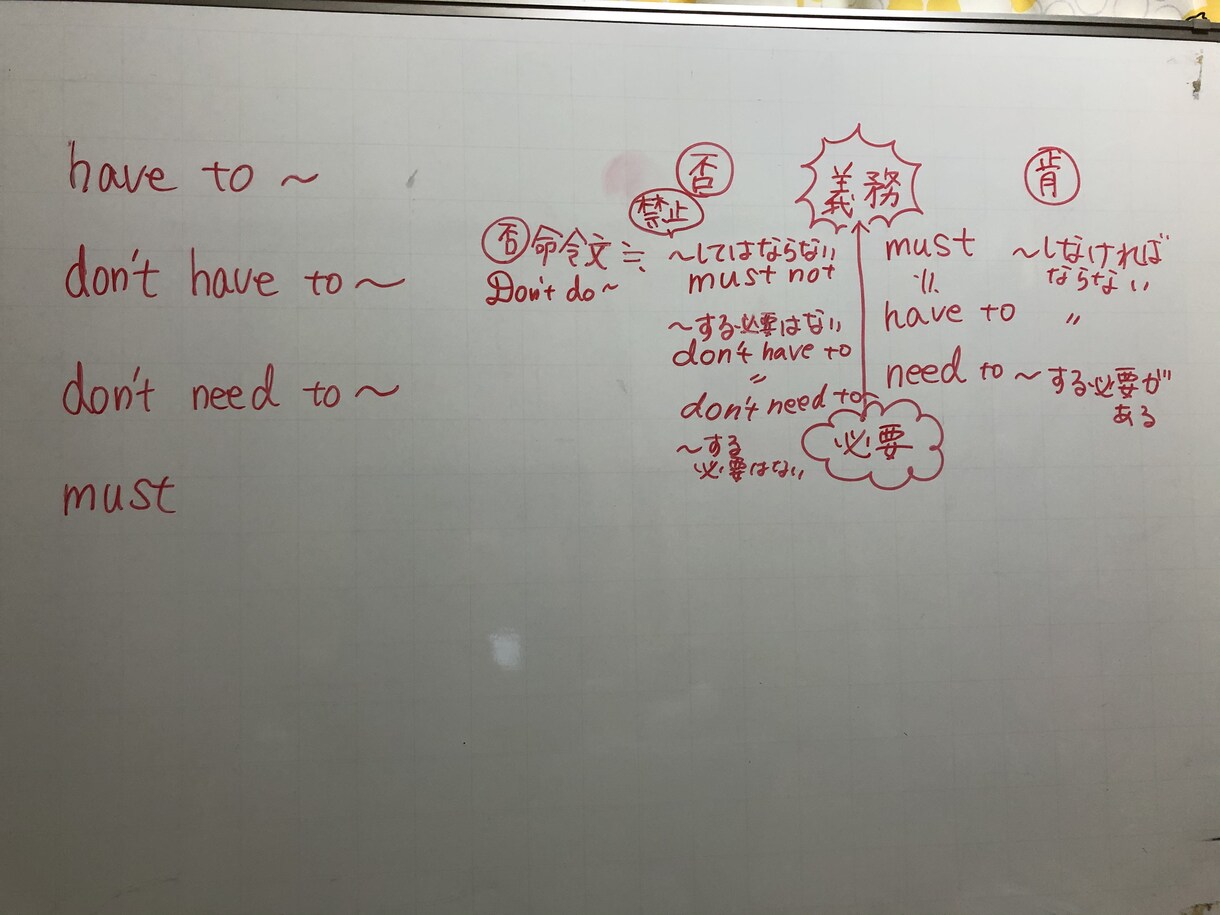 have to ~
don't have to ~
don't need to ~
must
否
禁止
否命令文 ≒
Don't do ~
~してはならない
must not
~する必要はない
don't have to
〃
don't need to
~する
必要はない
義務
必要
肯
must ~しなければ
ならない
=
have to 〃
need to ~する必要が
ある